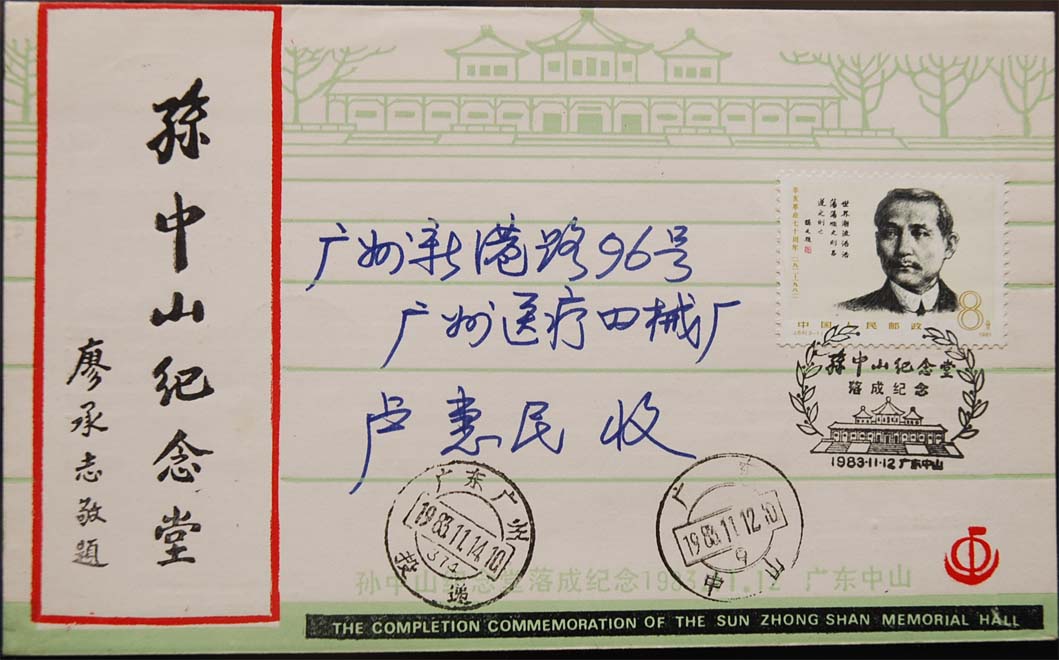 孫中山纪念堂
廖承志敬題
世界潮流浩浩
蕩蕩順之則昌
逆之則亡
孫文題
辛亥革命七十周年 一九一一—一九八一
中国人民邮政
8分
1981
广州新港路96号
广州医疗四械厂
卢惠民 收
孫中山纪念堂
落成纪念
1983·11·12 广东中山
广东广州
1983.11.14.10
374
投递
广东
1983.11.12.10
9
中山
孙中山纪念堂落成纪念1983.11.12 广东中山
THE COMPLETION COMMEMORATION OF THE SUN ZHONG SHAN MEMORIAL HALL